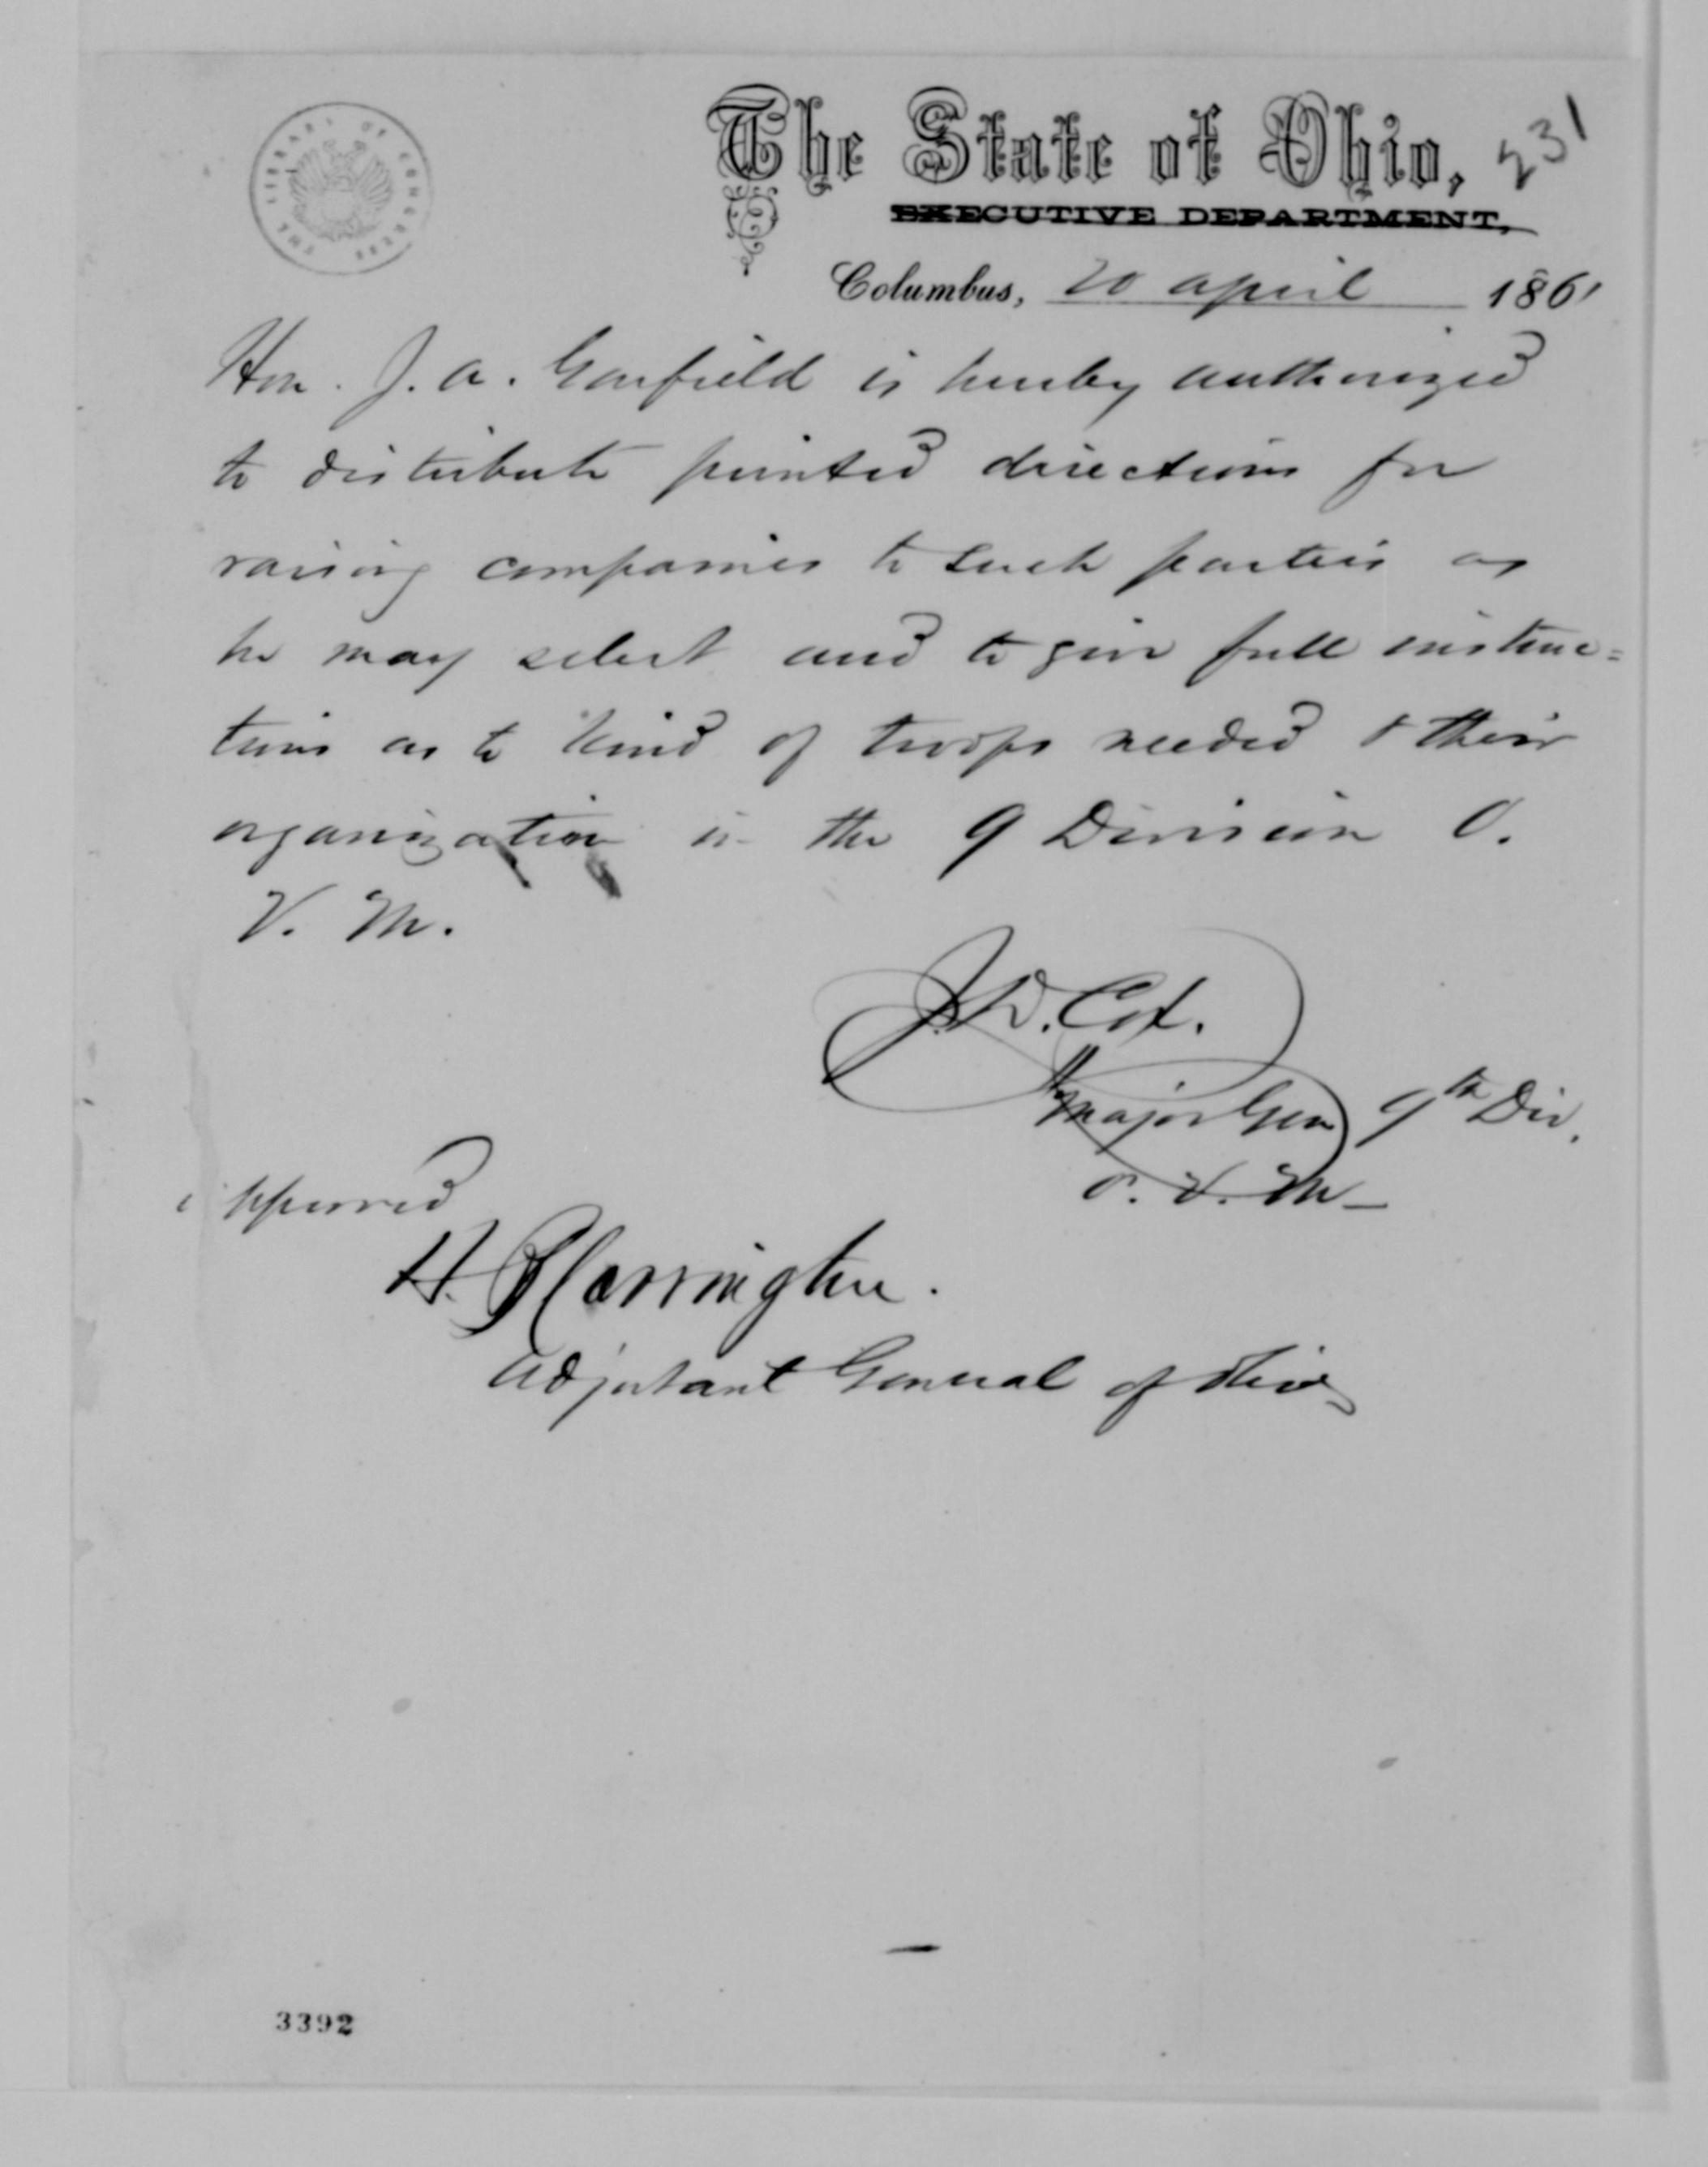 THE LIBRARY OF CONGRESS
The State of Ohio,
231
EXECUTIVE DEPARTMENT,
Columbus, 20 April 1861
Hon. J. A. Garfield is hereby authorized
to distribute printed directions for
raising companies to such parties as
he may select and to give full instruc=
tions as to kind of troops needed & their
organization in the 9 Division O.
V. M.
J. D. Cox.
Major Gen 9th Div.
O. V. M—
Approved
H. B. Carrington.
Adjutant General of Ohio
3392